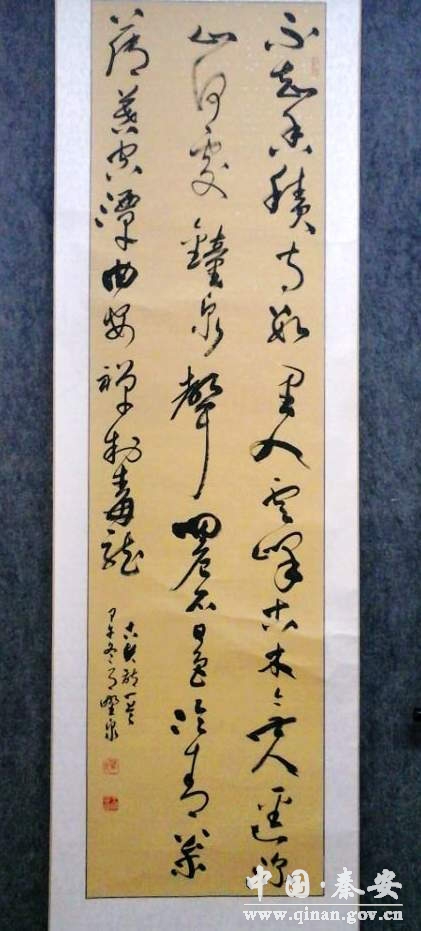 不知香積寺數里入雲峰古木無人逕深
山何處鐘泉聲咽危石日色冷青松
薄暮空潭曲安禪制毒龍
古賢詩一首
甲午冬月 泉
中国·秦安
www.qinan.gov.cn